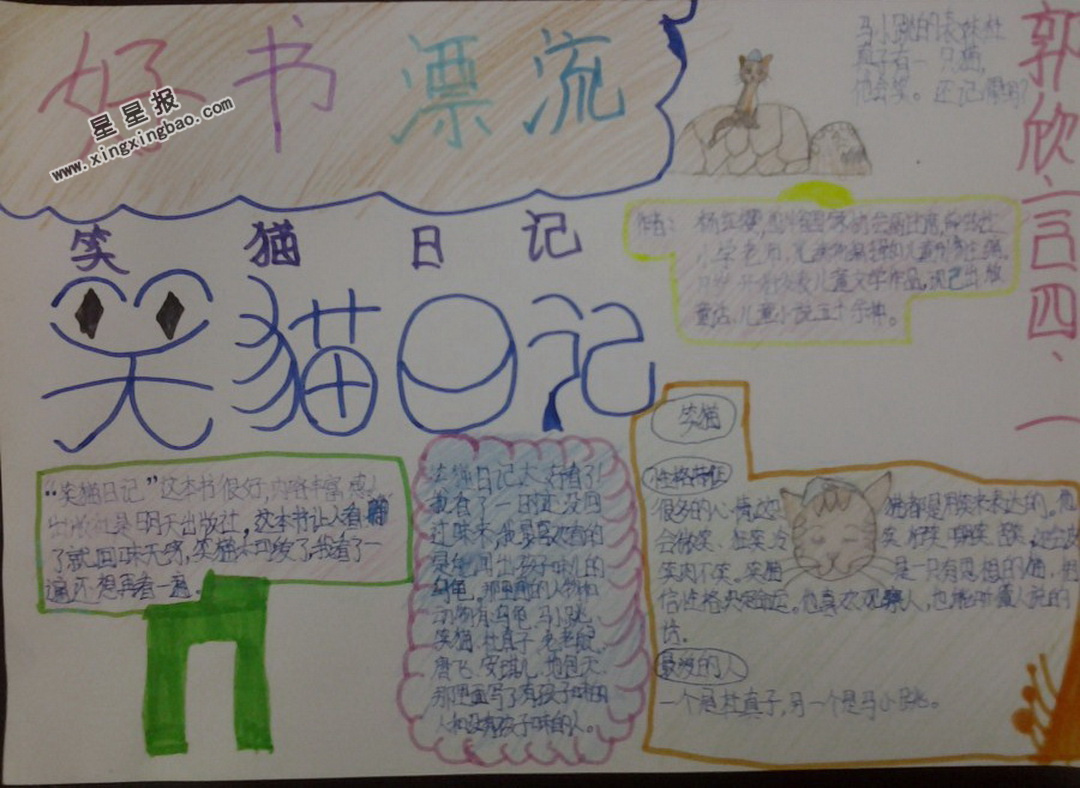 好书漂流
星星报
www.xingxingbao.com
马小跳的表妹杜
真子有一只猫,
他会笑。还记得吗?
郭欣言四、一
笑猫日记
笑猫日记
作者:杨红樱,
小学老师、儿童
开始发表儿童文学作品。现已出版
童话、儿童小说五十余种。
"笑猫日记"这本书很好,内容丰富感人
出版社是明天出版社,这本书让人看
了就回味无穷,笑猫太可爱了,我看了一
遍还想再看一遍。
笑猫日记太好看了!
我看了一明还没回
过味来,我最喜欢看的
是能闻出孩子味儿的
乌龟,那里面的人物和
动物有:乌龟、马小跳、
笑猫、杜真子、毛老师、
唐飞、安琪儿、地包天、
那里面写了有孩子味的
人和没有孩子味的人。
笑猫
性格特征
很多的心情这 猫都是用笑来表达的。他
会微笑、狂笑、冷 笑、奸笑、嘲笑、苦笑、
笑肉不笑。笑猫 是一只有思想的猫,相
信性格决定命运。他喜欢观察人,也能听懂人说的
话。
最爱的人
一个是杜真子,另一个是马小跳。